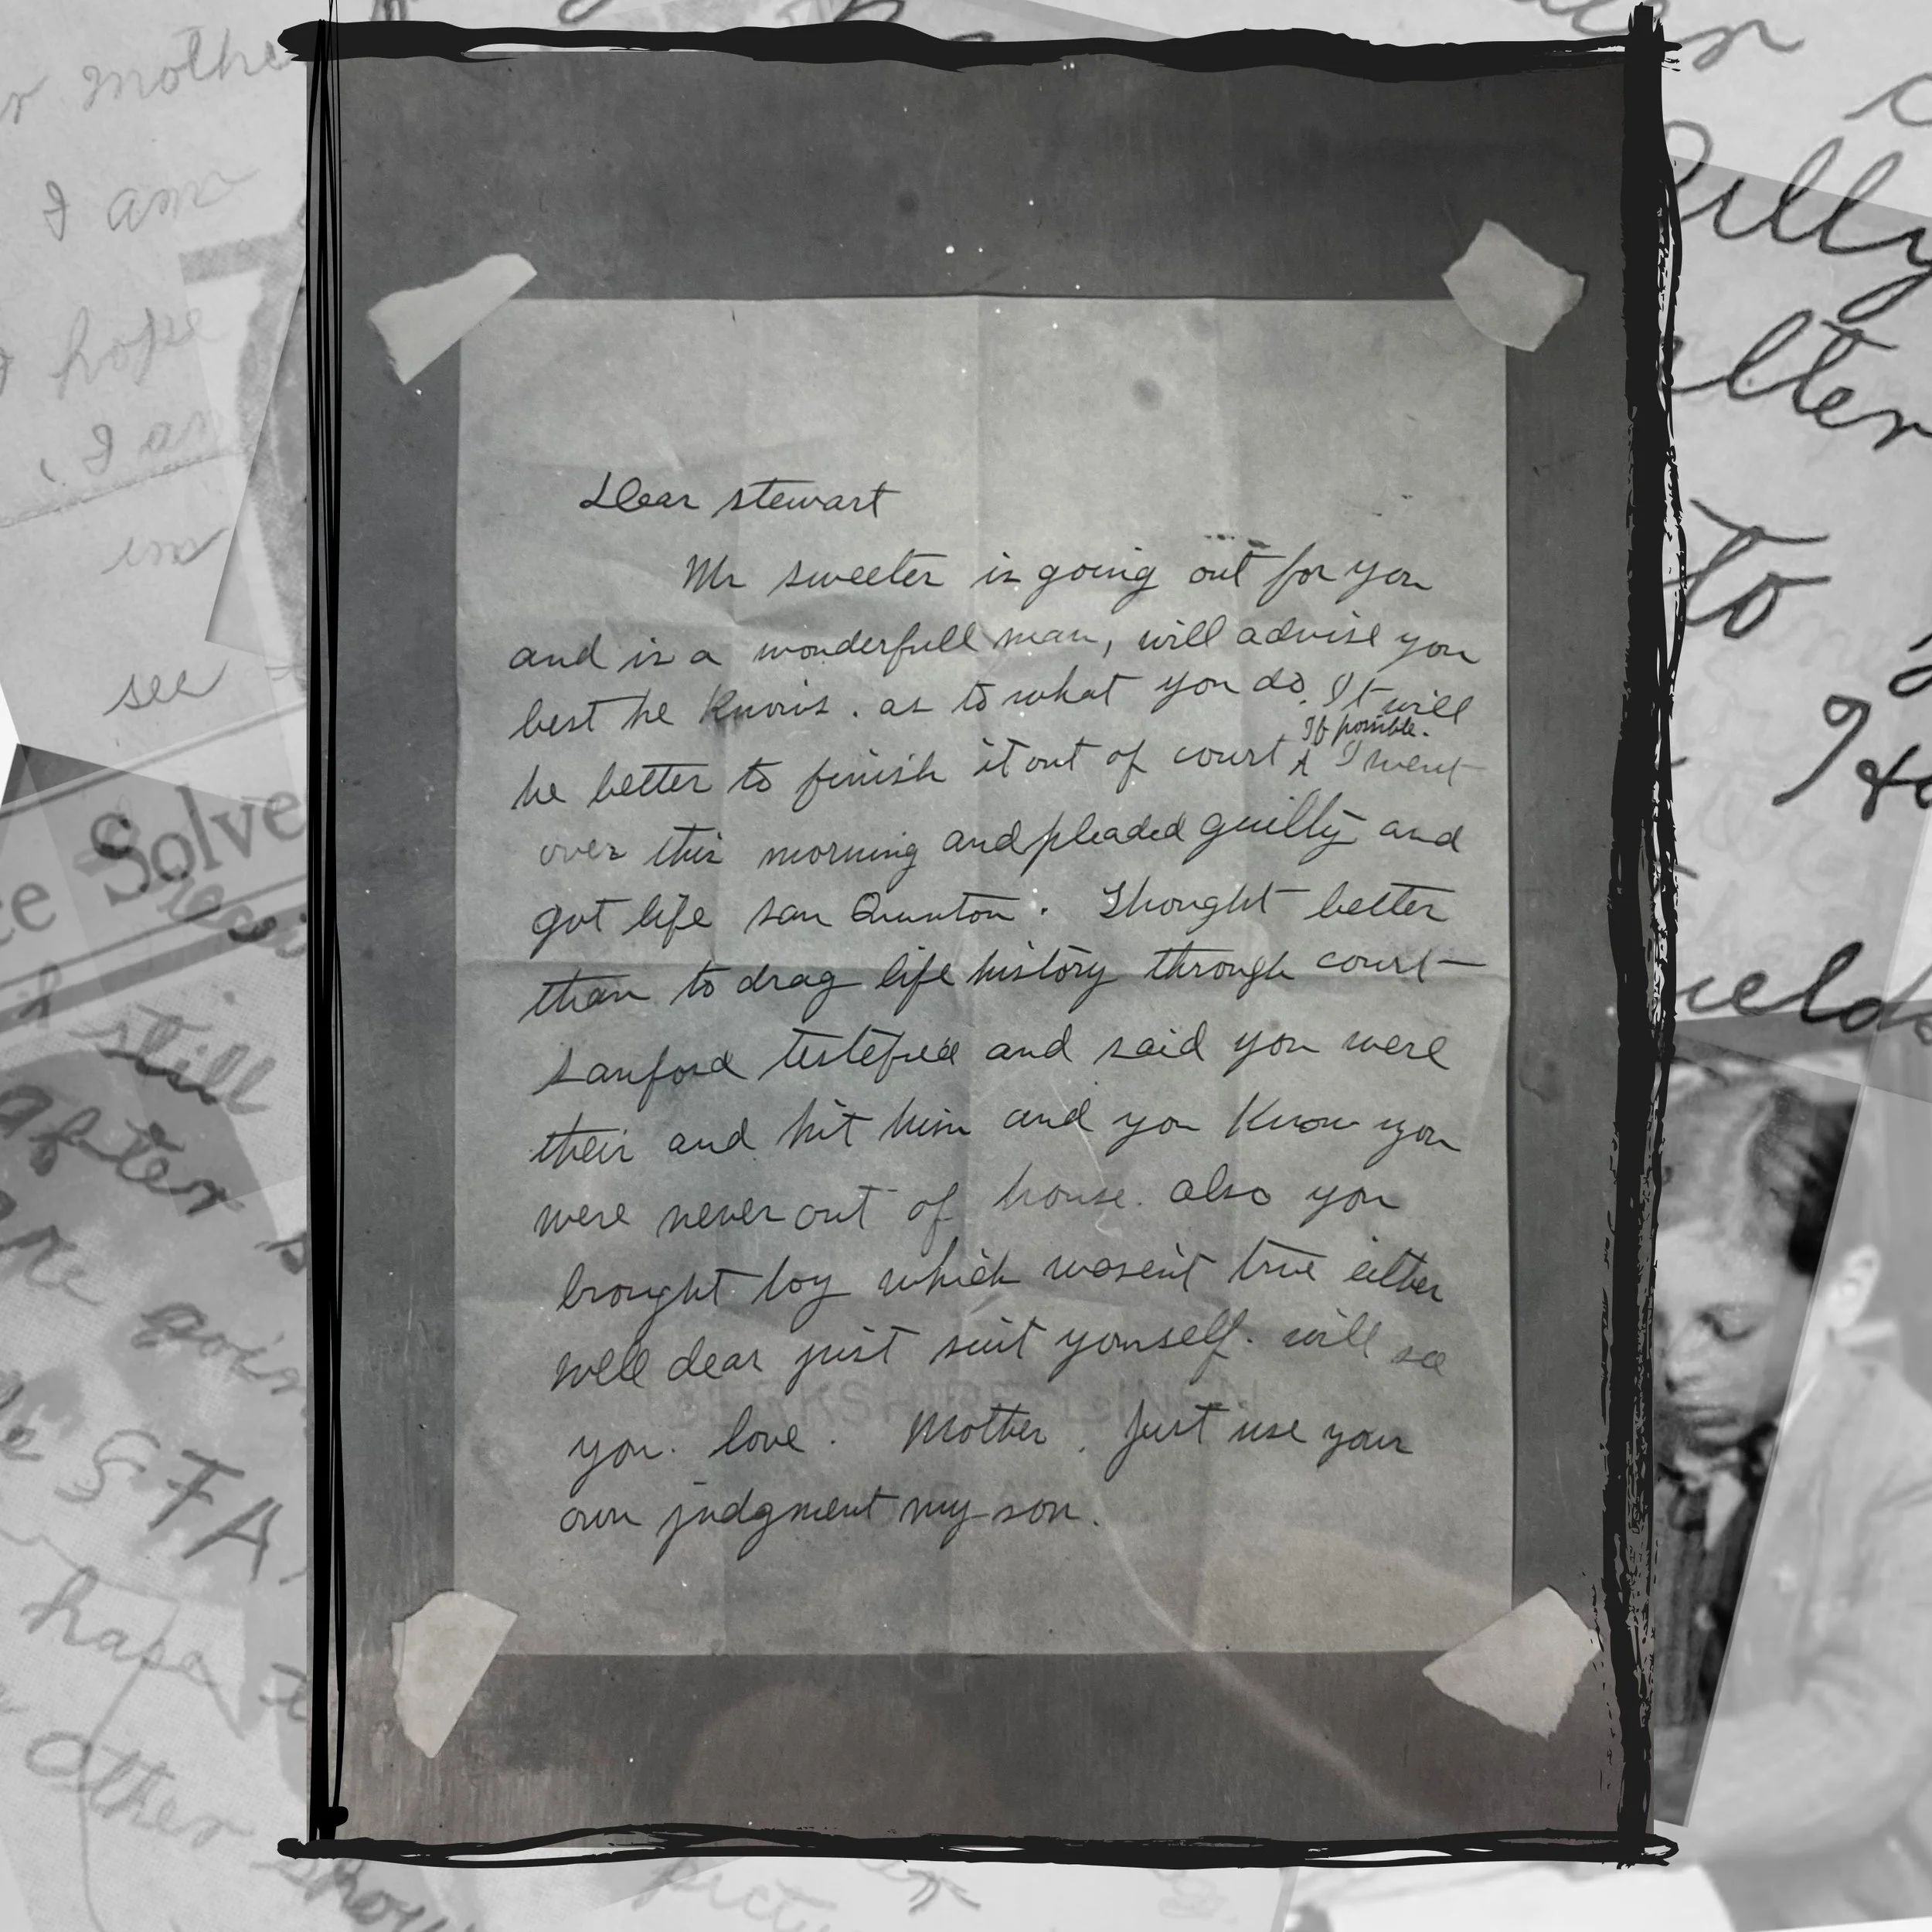 Dear stewart
Mr sweeter is going out for you
and is a wonderfull man, will advise you
best he knows. as to what you do. It will
If possible.
be better to finish it out of court ʌ I went
over this morning and pleaded guilty and
got life san Quinton. Thought better
than to drag life history through court—
sanford testefied and said you were
their and hit him and you know you
were never out of house. also you
brought boy which wasent true either
well dear just suit yourself. will see
you. love. Mother. Just use your
own judgment my son.
BERKSHIRE LINEN
mothe
I am
hope
I am
see
Solve
still
after
are goin
STA
hape
other
show
pictu
Billy
to